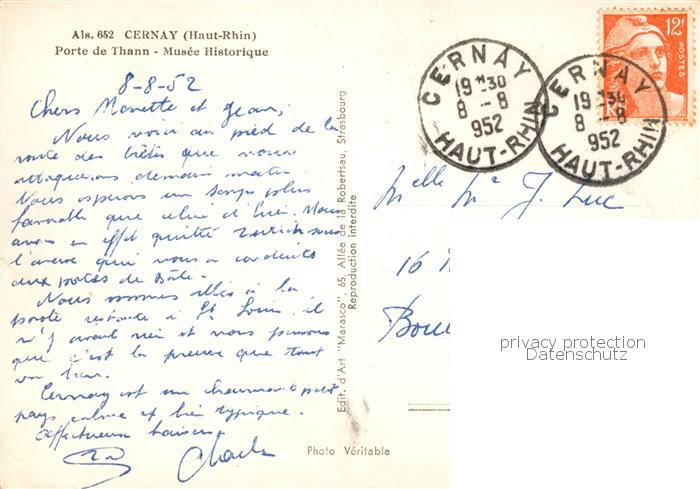 Als. 652 CERNAY (Haut-Rhin)
Porte de Thann - Musée Historique
8-8-52
Chers Monette et Jean,
Nous voici au pied de la
route des crêtes que nous
attaquerons demain matin
Nous espérons un temps plus
favorable que celui d'hier. Nous
avons en effet quitté Zurich sous
l'averse qui nous a conduits
aux portes de Bâle.
Nous sommes allés à la
poste restante à St Louis, il
n'y avait rien et nous pensons
que c'est la preuve que tout
va bien.
Cernay est un charmant petit
pays calme et bien typique.
Affectueux baisers
Charles
Edit. d'Art "Marasco", 65, Allée de la Robertsau, Strasbourg
Reproduction interdite
Photo Véritable
12F
POSTES
CERNAY
19H30
8-8
952
HAUT-RHIN
CERNAY
19H30
8-8
952
HAUT-RHIN
Melle Mr J. Luc
16
privacy protection
Datenschutz